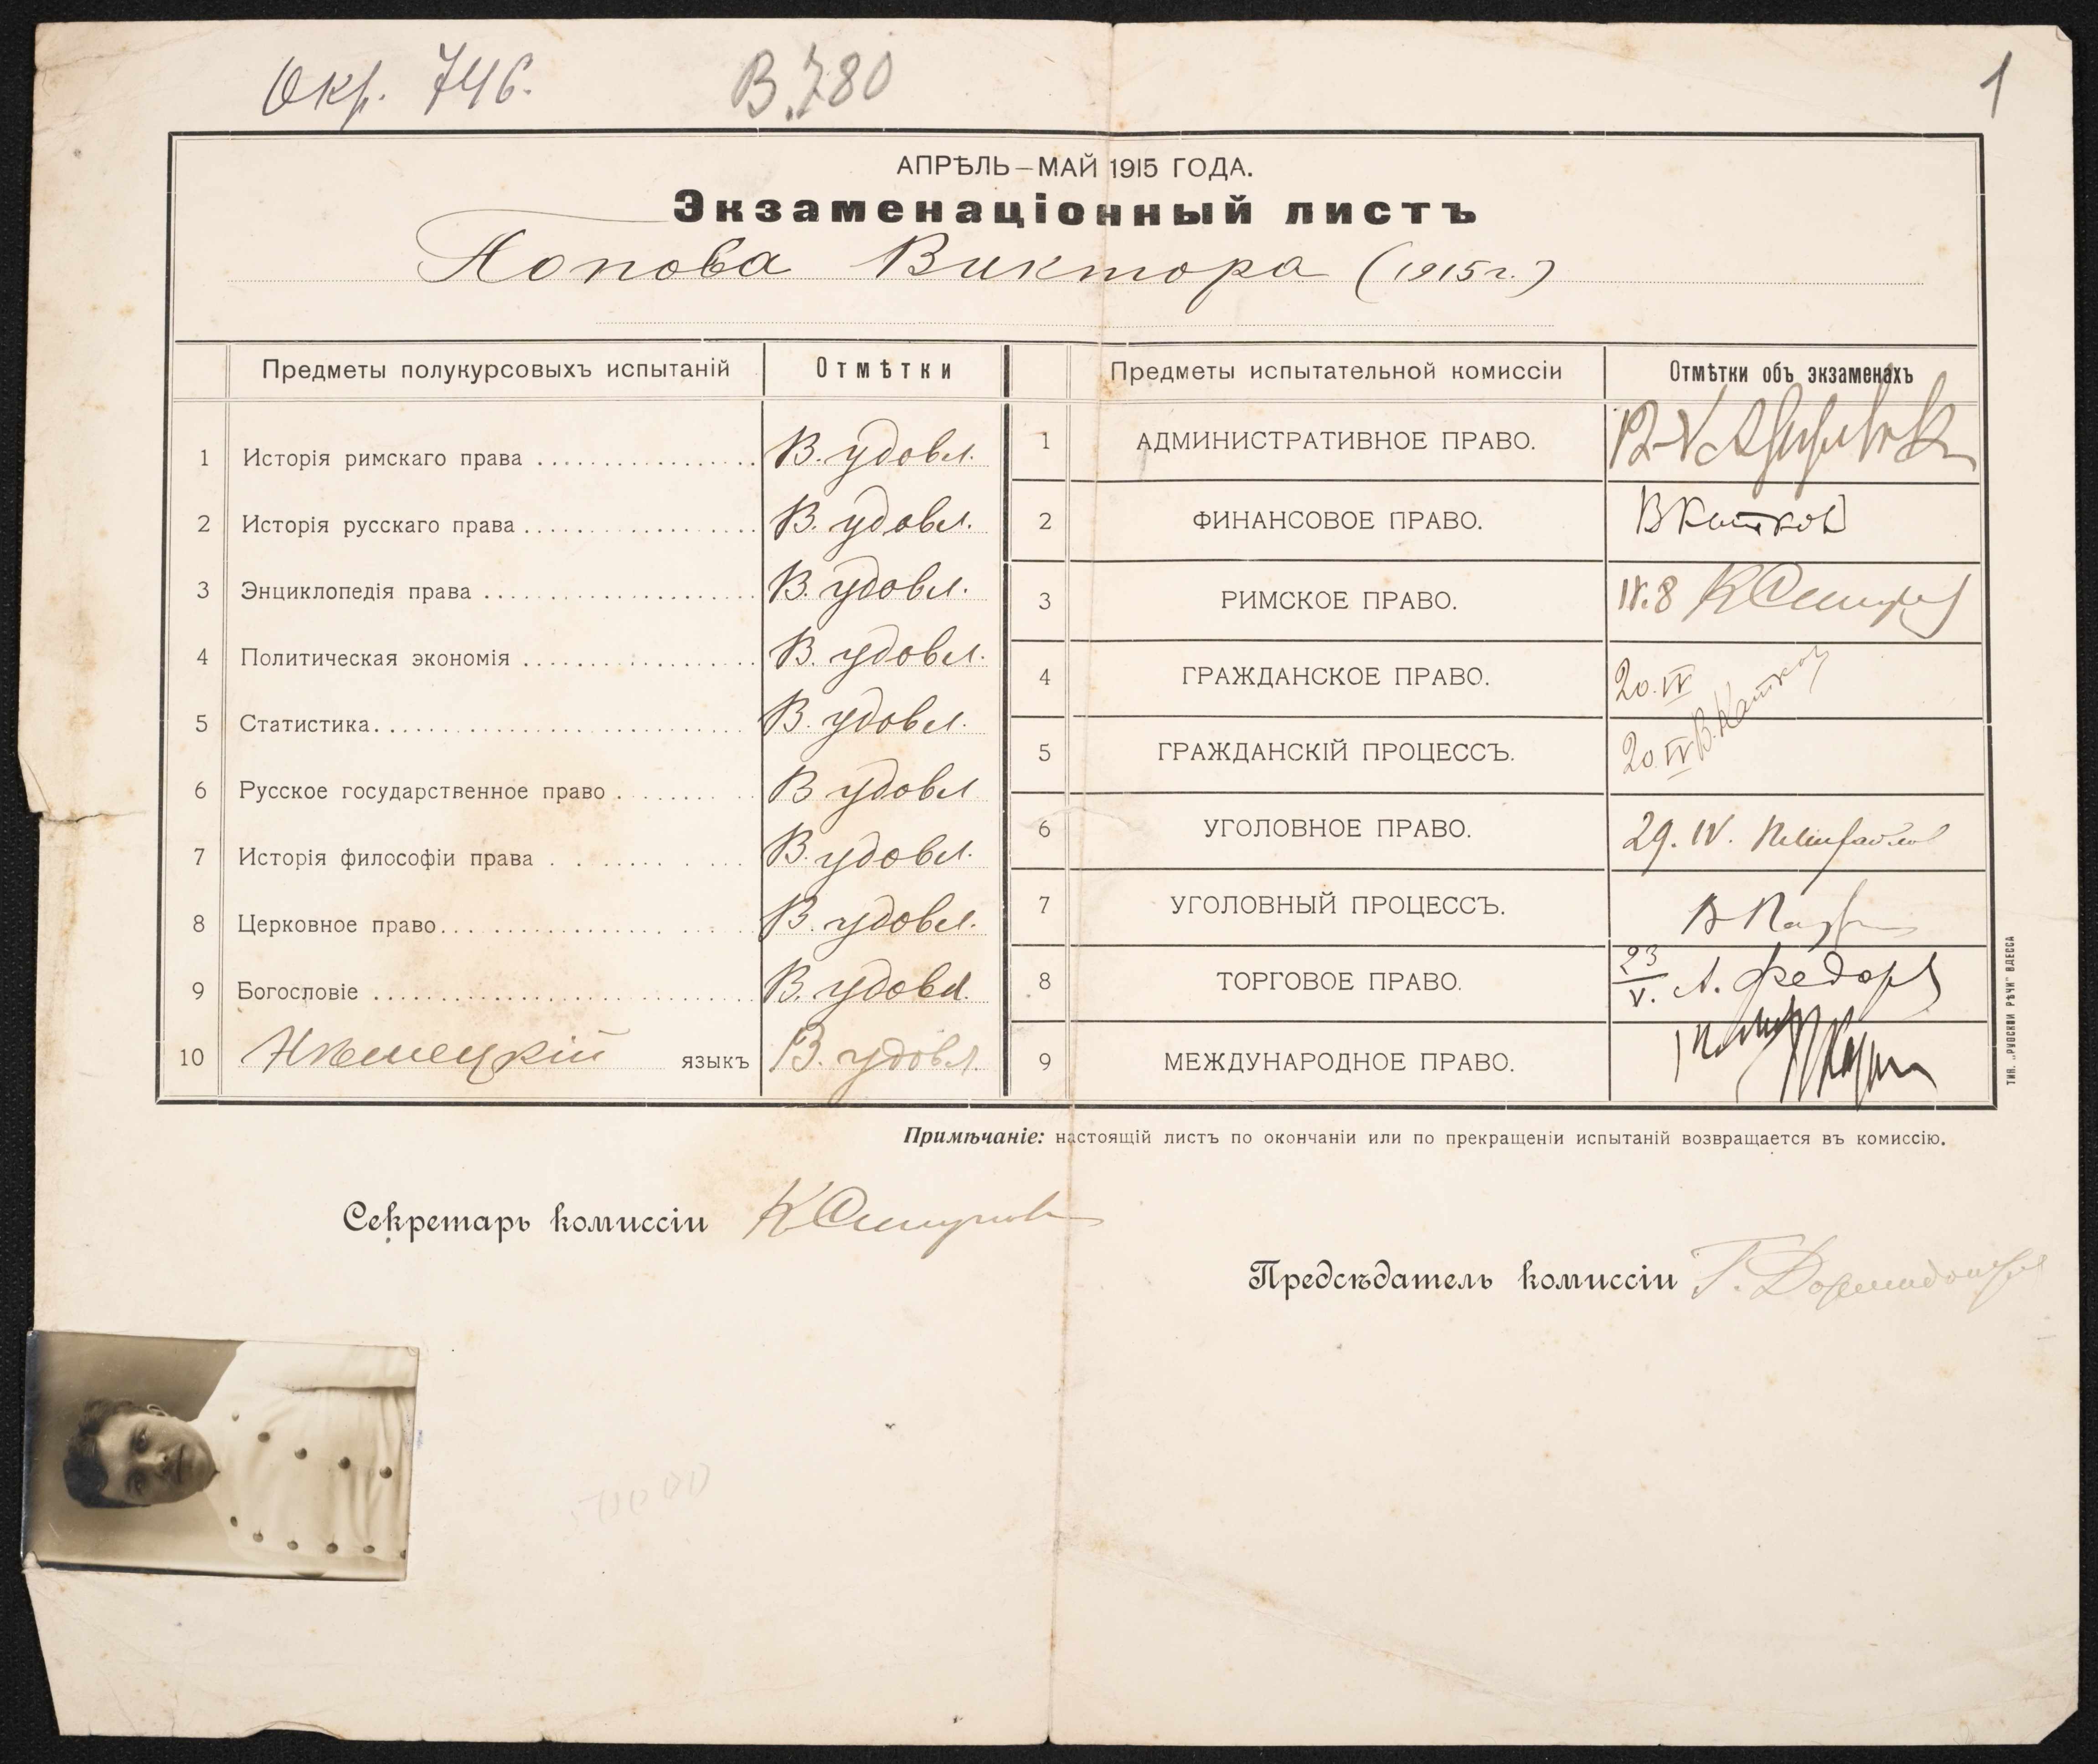 Окр. 746.
В.780
1
АПРѢЛЬ – МАЙ 1915 ГОДА.
Экзаменаціонный листъ
Попова Виктора (1915 г.)
Предметы полукурсовыхъ испытаній Отмѣтки
1 Исторія римскаго права В. удовл.
2 Исторія русскаго права В. удовл.
3 Энциклопедія права В. удовл.
4 Политическая экономія В. удовл.
5 Статистика В. удовл.
6 Русское государственное право В удовл
7 Исторія философіи права В. удовл.
8 Церковное право В. удовл.
9 Богословіе В. удовл.
10 Нѣмецкій языкъ В. удовл.
Предметы испытательной комиссіи Отмѣтки объ экзаменахъ
1 АДМИНИСТРАТИВНОЕ ПРАВО.
2 ФИНАНСОВОЕ ПРАВО. В Катков
3 РИМСКОЕ ПРАВО. IV.8 К Смирнов
4 ГРАЖДАНСКОЕ ПРАВО. 20.IV
5 ГРАЖДАНСКІЙ ПРОЦЕССЪ. 20.IV В. Катков
6 УГОЛОВНОЕ ПРАВО. 29. IV.
7 УГОЛОВНЫЙ ПРОЦЕССЪ.
8 ТОРГОВОЕ ПРАВО. 23/V. А. Федоров
9 МЕЖДУНАРОДНОЕ ПРАВО.
ТИП. „РУССКОЙ РѢЧИ" ОДЕССА
Примѣчаніе: настоящій листъ по окончаніи или по прекращеніи испытаній возвращается въ комиссію.
Секретарь комиссіи К Смирнов
Предсѣдатель комиссіи Г.